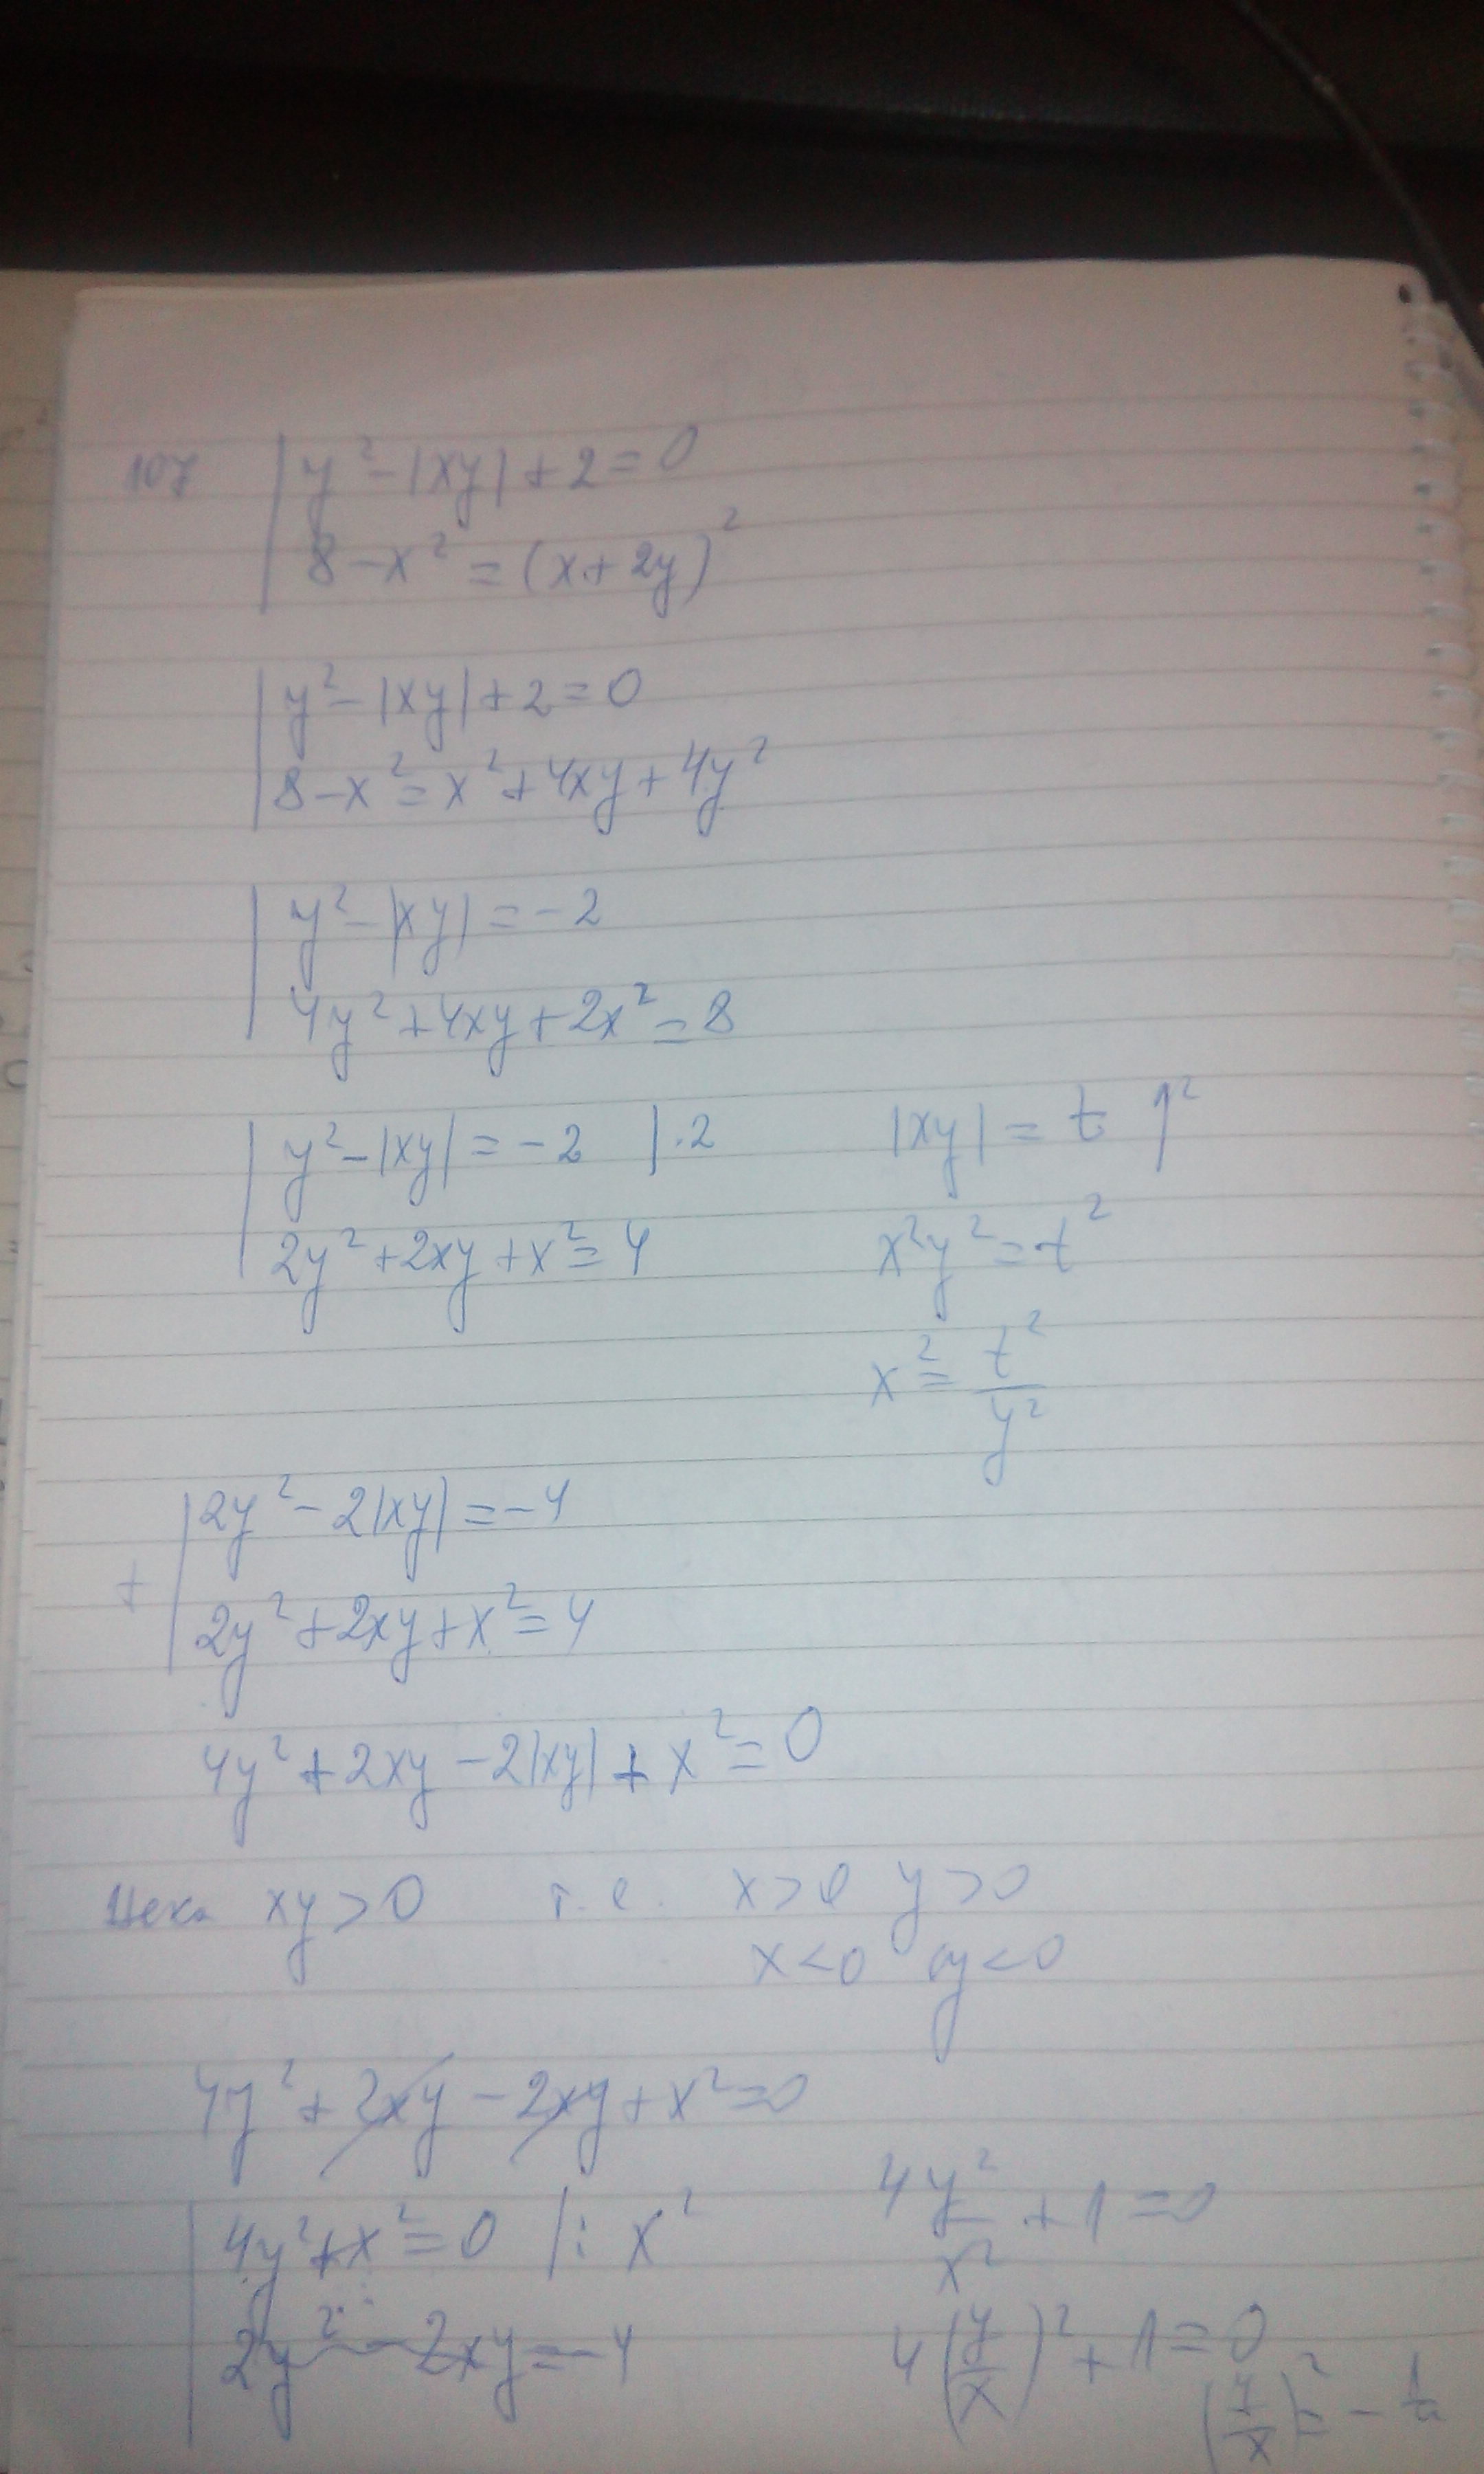 107 | y² - |xy| + 2 = 0
| 8 - x² = (x + 2y)²
| y² - |xy| + 2 = 0
| 8 - x² = x² + 4xy + 4y²
| y² - |xy| = -2
| 4y² + 4xy + 2x² = 8
| y² - |xy| = -2 | .2
| 2y² + 2xy + x² = 4
|xy| = t ↑²
x²y² = t²
x² = t²/y²
| 2y² - 2|xy| = -4
+
| 2y² + 2xy + x² = 4
4y² + 2xy - 2|xy| + x² = 0
Нека xy > 0 т.е. x > 0 y > 0
x < 0 y < 0
4y² + 2xy - 2xy + x² = 0
| 4y² + x² = 0 | : x²
| 2y² - 2xy = -4
4y²/x² + 1 = 0
4(y/x)² + 1 = 0
(y/x)² = -